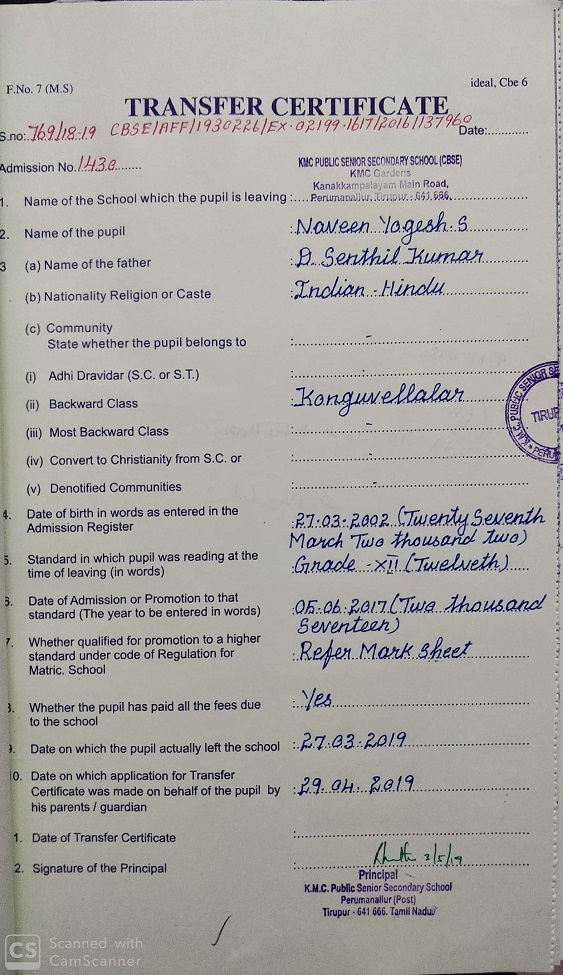 F.No. 7 (M.S)
ideal, Cbe 6
TRANSFER CERTIFICATE
S.no: 769/18-19 CBSE/AFF/1930226/EX-02199-1617/2016/137960 Date:............
Admission No. 1430........
KMC PUBLIC SENIOR SECONDARY SCHOOL (CBSE)
KMC Gardens
Kanakkampalayam Main Road,
1. Name of the School which the pupil is leaving :.... Perumanallur, Tirupur - 641 666.
2. Name of the pupil : Naveen Yogesh.S
3 (a) Name of the father : D. Senthil Kumar
(b) Nationality Religion or Caste : Indian - Hindu
(c) Community
State whether the pupil belongs to : -
(i) Adhi Dravidar (S.C. or S.T.) : -
(ii) Backward Class : Konguvellalar
(iii) Most Backward Class : -
(iv) Convert to Christianity from S.C. or : -
(v) Denotified Communities : -
4. Date of birth in words as entered in the : 27.03.2002 (Twenty Seventh
Admission Register March Two thousand two)
5. Standard in which pupil was reading at the : Grade - XII (Twelveth)
time of leaving (in words)
6. Date of Admission or Promotion to that : 05.06.2017 (Two thousand
standard (The year to be entered in words) Seventeen)
7. Whether qualified for promotion to a higher : Refer Mark Sheet
standard under code of Regulation for
Matric. School
8. Whether the pupil has paid all the fees due : Yes
to the school
9. Date on which the pupil actually left the school : 27.03.2019
10. Date on which application for Transfer : 29.04.2019
Certificate was made on behalf of the pupil by
his parents / guardian
1. Date of Transfer Certificate :
2. Signature of the Principal : 3/5/19
Principal
K.M.C. Public Senior Secondary School
Perumanallur (Post)
Tirupur - 641 666. Tamil Nadu
K.M.C. PUBLIC SENIOR SE
TIRUP
PERU
CS Scanned with
CamScanner